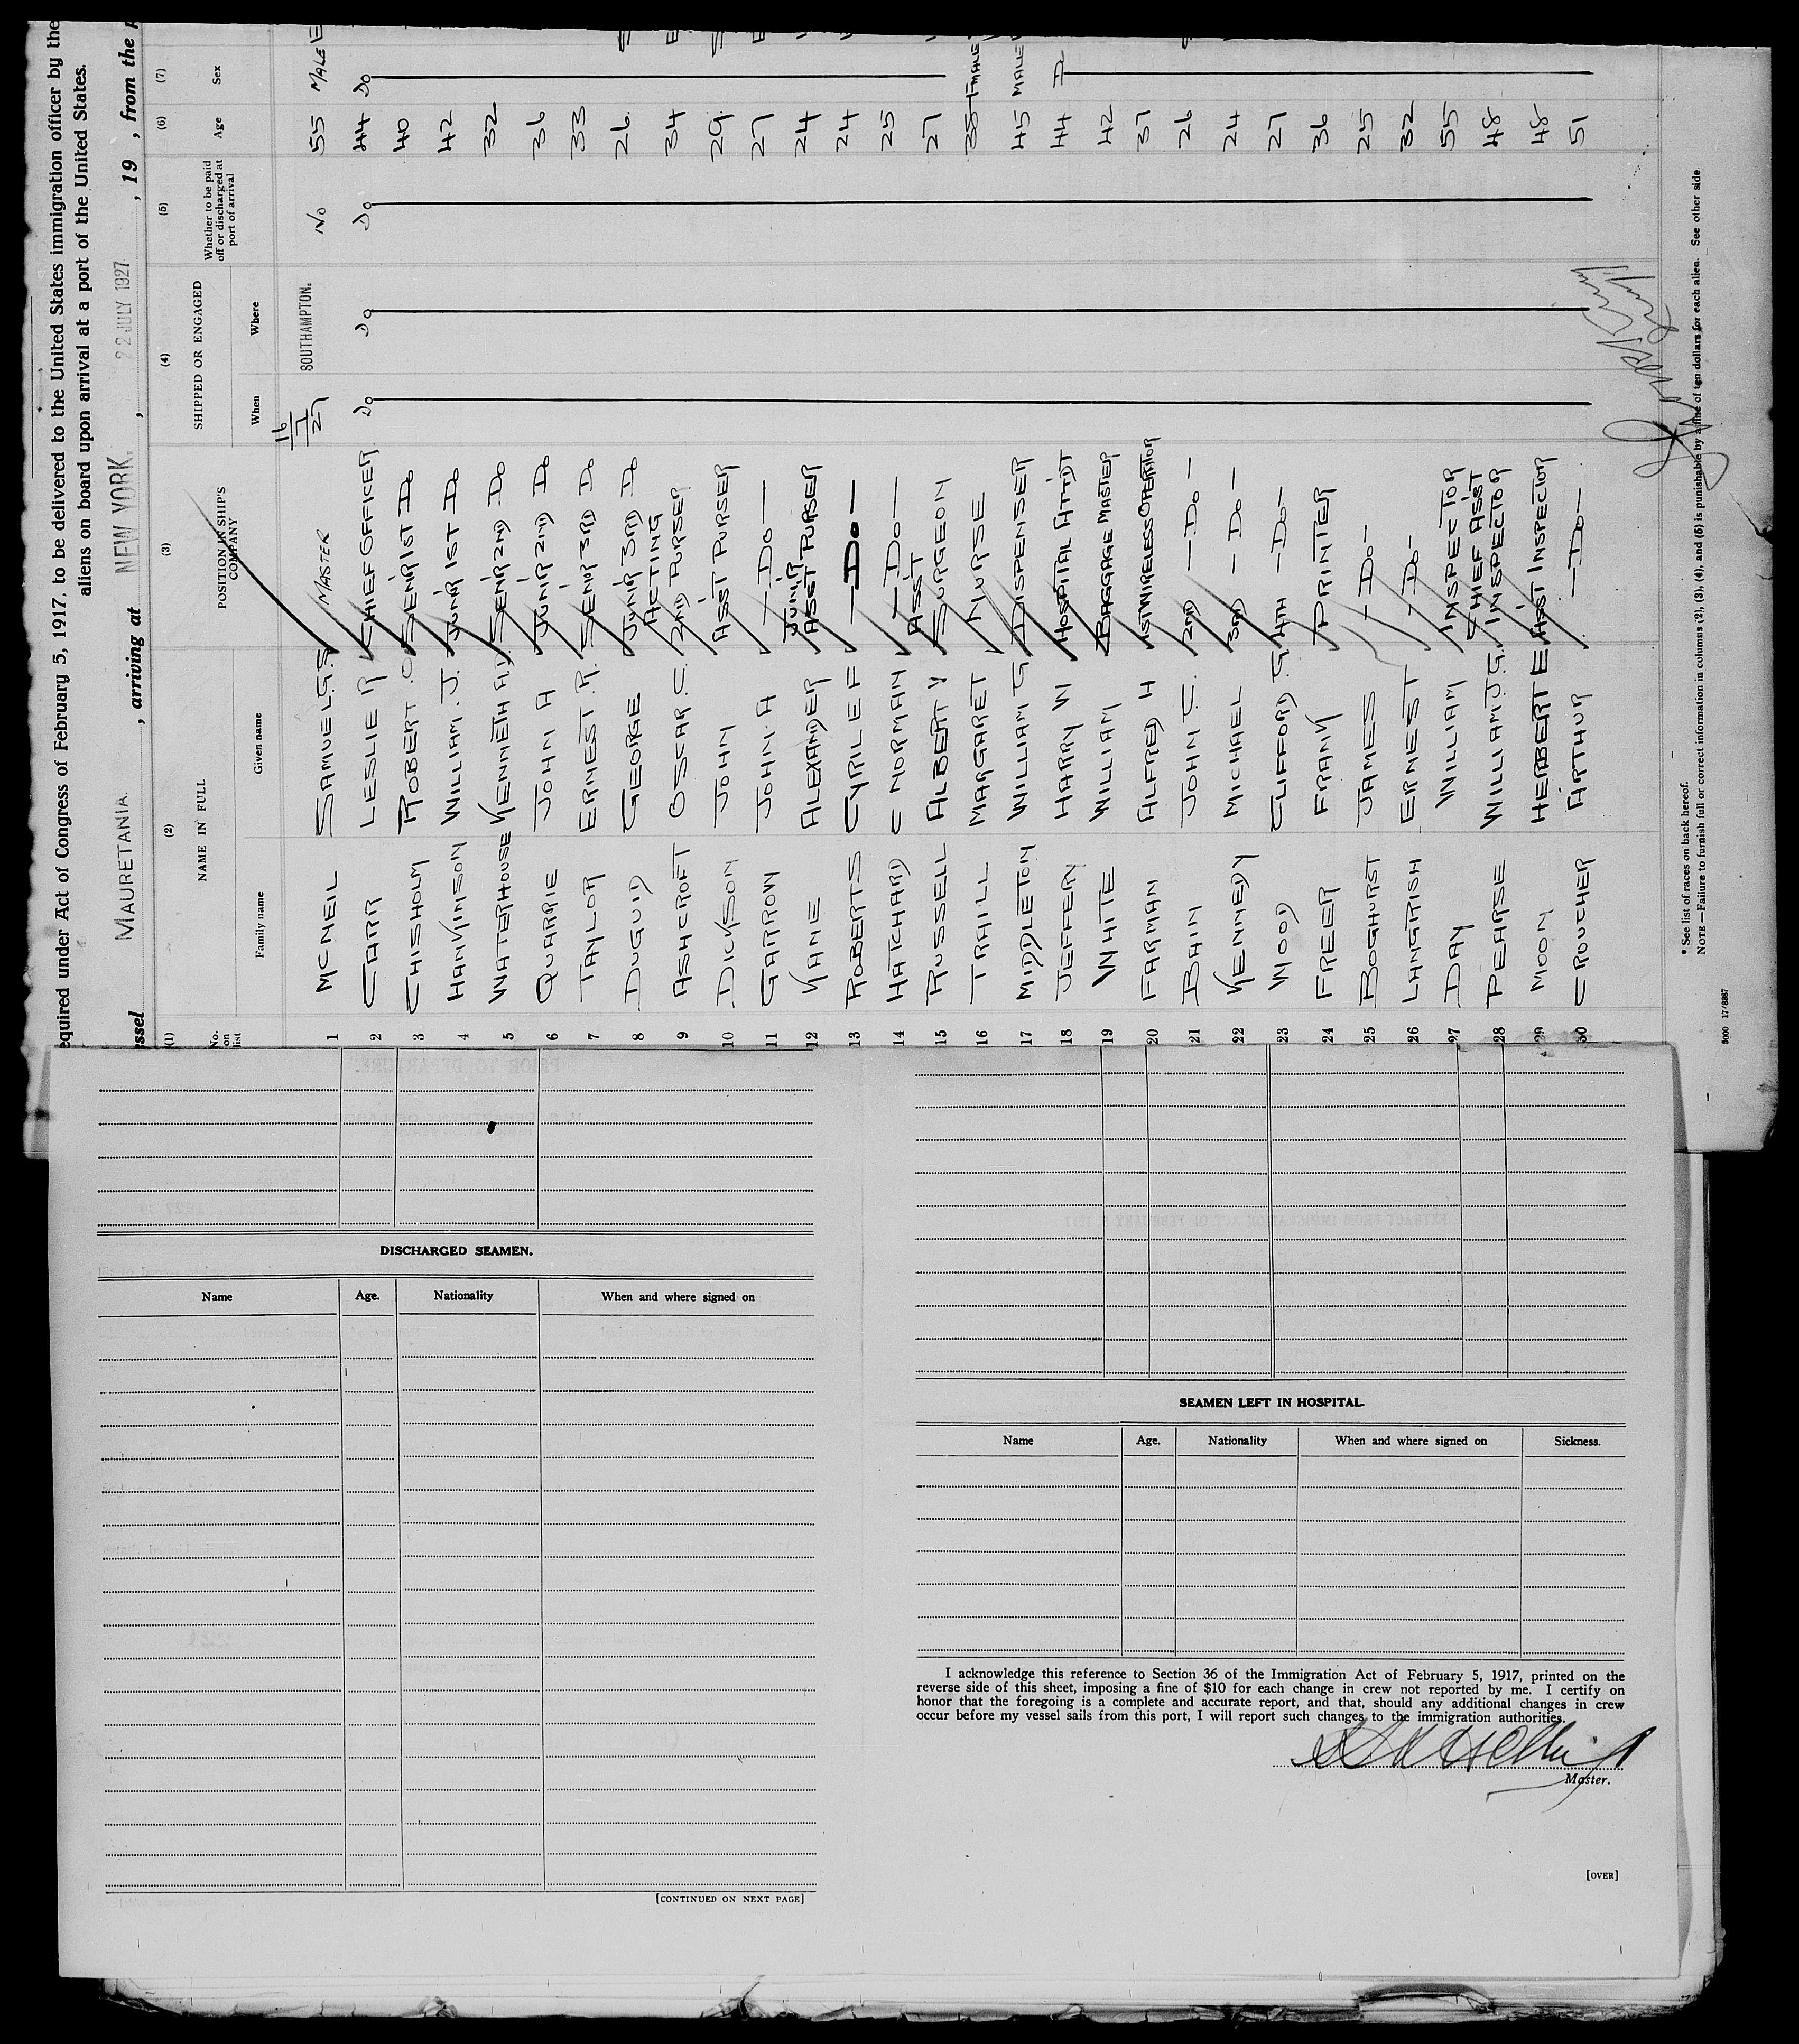 equired under Act of Congress of February 5, 1917, to be delivered to the United States immigration officer by the
aliens on board upon arrival at a port of the United States.
essel MAURETANIA , arriving at NEW YORK. , 22 JULY 1927 , 19 , from the
(1) (2) (3) (4) (5) (6) (7)
No. on list NAME IN FULL POSITION IN SHIP'S COMPANY SHIPPED OR ENGAGED Whether to be paid off or discharged at port of arrival Age Sex
Family name Given name When Where
1 MCNEIL SAMUEL G.S MASTER 16/7/27 SOUTHAMPTON. NO 55 MALE
2 CARR LESLIE R CHIEF OFFICER DO DO DO 44 DO
3 CHISHOLM ROBERT C SENR 1ST DO 40
4 HANKINSON WILLIAM. J. JUNR 1ST DO 42
5 WATERHOUSE KENNETH A.J. SENR 2ND DO 32
6 QUARRIE JOHN A JUNR 2ND DO 36
7 TAYLOR ERNEST. R. SENR 3RD DO 33
8 DUGUID GEORGE JUNR 3RD DO 26
9 ASHCROFT OSCAR C. ACTING 2ND PURSER 34
10 DICKSON JOHN ASST PURSER 29
11 GARROW JOHN. A — DO — 27
12 KANE ALEXANDER JUNR ASST PURSER 24
13 ROBERTS CYRIL E F — DO — 24
14 HATCHARD C NORMAN — DO — 25
15 RUSSELL ALBERT V ASST SURGEON 27
16 TRAILL MARGARET NURSE 35 FMALE
17 MIDDLETON WILLIAM G DISPENSER 45 MALE
18 JEFFERY HARRY W HOSPITAL ATTDT 44 D
19 WHITE WILLIAM BAGGAGE MASTER 42
20 FARMAN ALFRED H 1ST WIRELESS OPERATOR 37
21 BAIN JOHN C. 2ND — DO — 26
22 KENNEDY MICHAEL 3RD — DO — 24
23 WOOD CLIFFORD G 4TH — DO — 27
24 FREER FRANK PRINTER 36
25 BOGHURST JAMES — DO — 25
26 LANGRISH ERNEST — DO — 32
27 DAY WILLIAM INSPECTOR 55
28 PEARSE WILLIAM J.G. CHIEF ASST INSPECTOR 48
29 MOON HERBERT E ASST INSPECTOR 48
30 CROUCHER ARTHUR — DO — 51
* See list of races on back hereof.
NOTE—Failure to furnish full or correct information in columns (2), (3), (4), and (5) is punishable by a fine of ten dollars for each alien. See other side
5000 17/8887
DISCHARGED SEAMEN.
Name Age. Nationality When and where signed on
[CONTINUED ON NEXT PAGE]
SEAMEN LEFT IN HOSPITAL.
Name Age. Nationality When and where signed on Sickness.
I acknowledge this reference to Section 36 of the Immigration Act of February 5, 1917, printed on the
reverse side of this sheet, imposing a fine of $10 for each change in crew not reported by me. I certify on
honor that the foregoing is a complete and accurate report, and that, should any additional changes in crew
occur before my vessel sails from this port, I will report such changes to the immigration authorities.
Master.
[OVER]